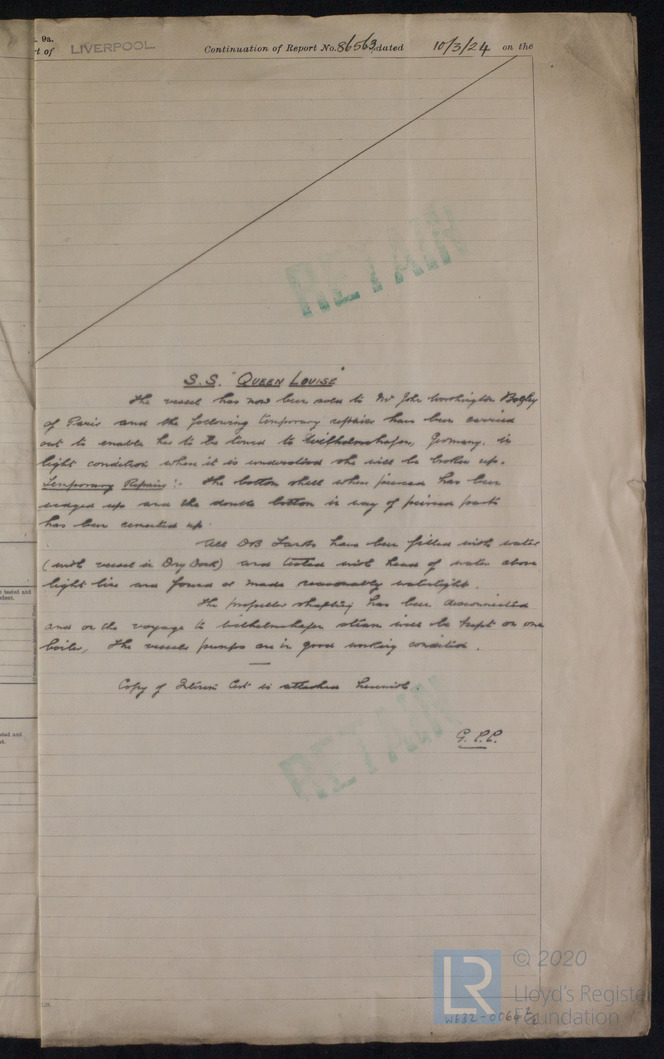 . 9a.
rt of LIVERPOOL Continuation of Report No. 86563 dated 10/3/24 on the
RETAIN
S.S. "Queen Louise"
The vessel has now been sold to Mr John Worthington
of Paris and the following temporary repairs have been carried
out to enable her to be towed to Wilhelmshafen, Germany. in
light condition when it is understood she will be broken up.
Temporary Repairs :- The bottom shell when pierced has been
wedged up and the double bottom in way of pierced parts
has been cemented up.
All DB Tanks have been filled with water
(with vessel in Dry Dock) and tested with head of water above
light line and found or made reasonably watertight.
The propeller shafting has been disconnected
and on the voyage to Wilhelmshafen steam will be kept on one
boiler, the vessels pumps are in good working condition.
Copy of Interim Cert is attached herewith.
RETAIN
tested and
© 2020
LR Lloyd's Register
Foundation